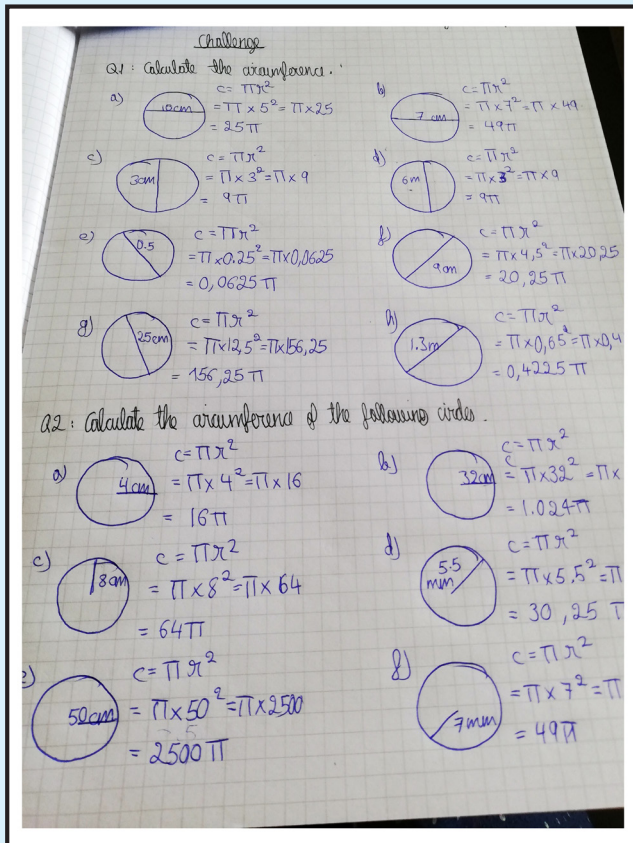 Challenge
Q1: Calculate the circumference.
a) 10cm
c = πr²
= π × 5² = π × 25
= 25π
b) 7 cm
c = πr²
= π × 7² = π × 49
= 49π
c) 3cm
c = πr²
= π × 3² = π × 9
= 9π
d) 6m
c = πr²
= π × 3² = π × 9
= 9π
e) 0.5
c = πr²
= π × 0.25² = π × 0,0625
= 0,0625 π
f) 9cm
c = πr²
= π × 4,5² = π × 20,25
= 20,25π
g) 25cm
c = πr²
= π × 12,5² = π × 156,25
= 156,25 π
h) 1.3m
c = πr²
= π × 0,65² = π × 0,4
= 0,4225 π
Q2: Calculate the circumference of the following circles.
a) 4cm
c = πr²
= π × 4² = π × 16
= 16π
b) 32cm
c = πr²
= π × 32² = π ×
= 1.024π
c) 8cm
c = πr²
= π × 8² = π × 64
= 64π
d) 5.5 mm
c = πr²
= π × 5,5² = π
= 30,25
e) 50cm
c = πr²
= π × 50² = π × 2500
= 2500 π
f) 7mm
c = πr²
= π × 7² = π
= 49π